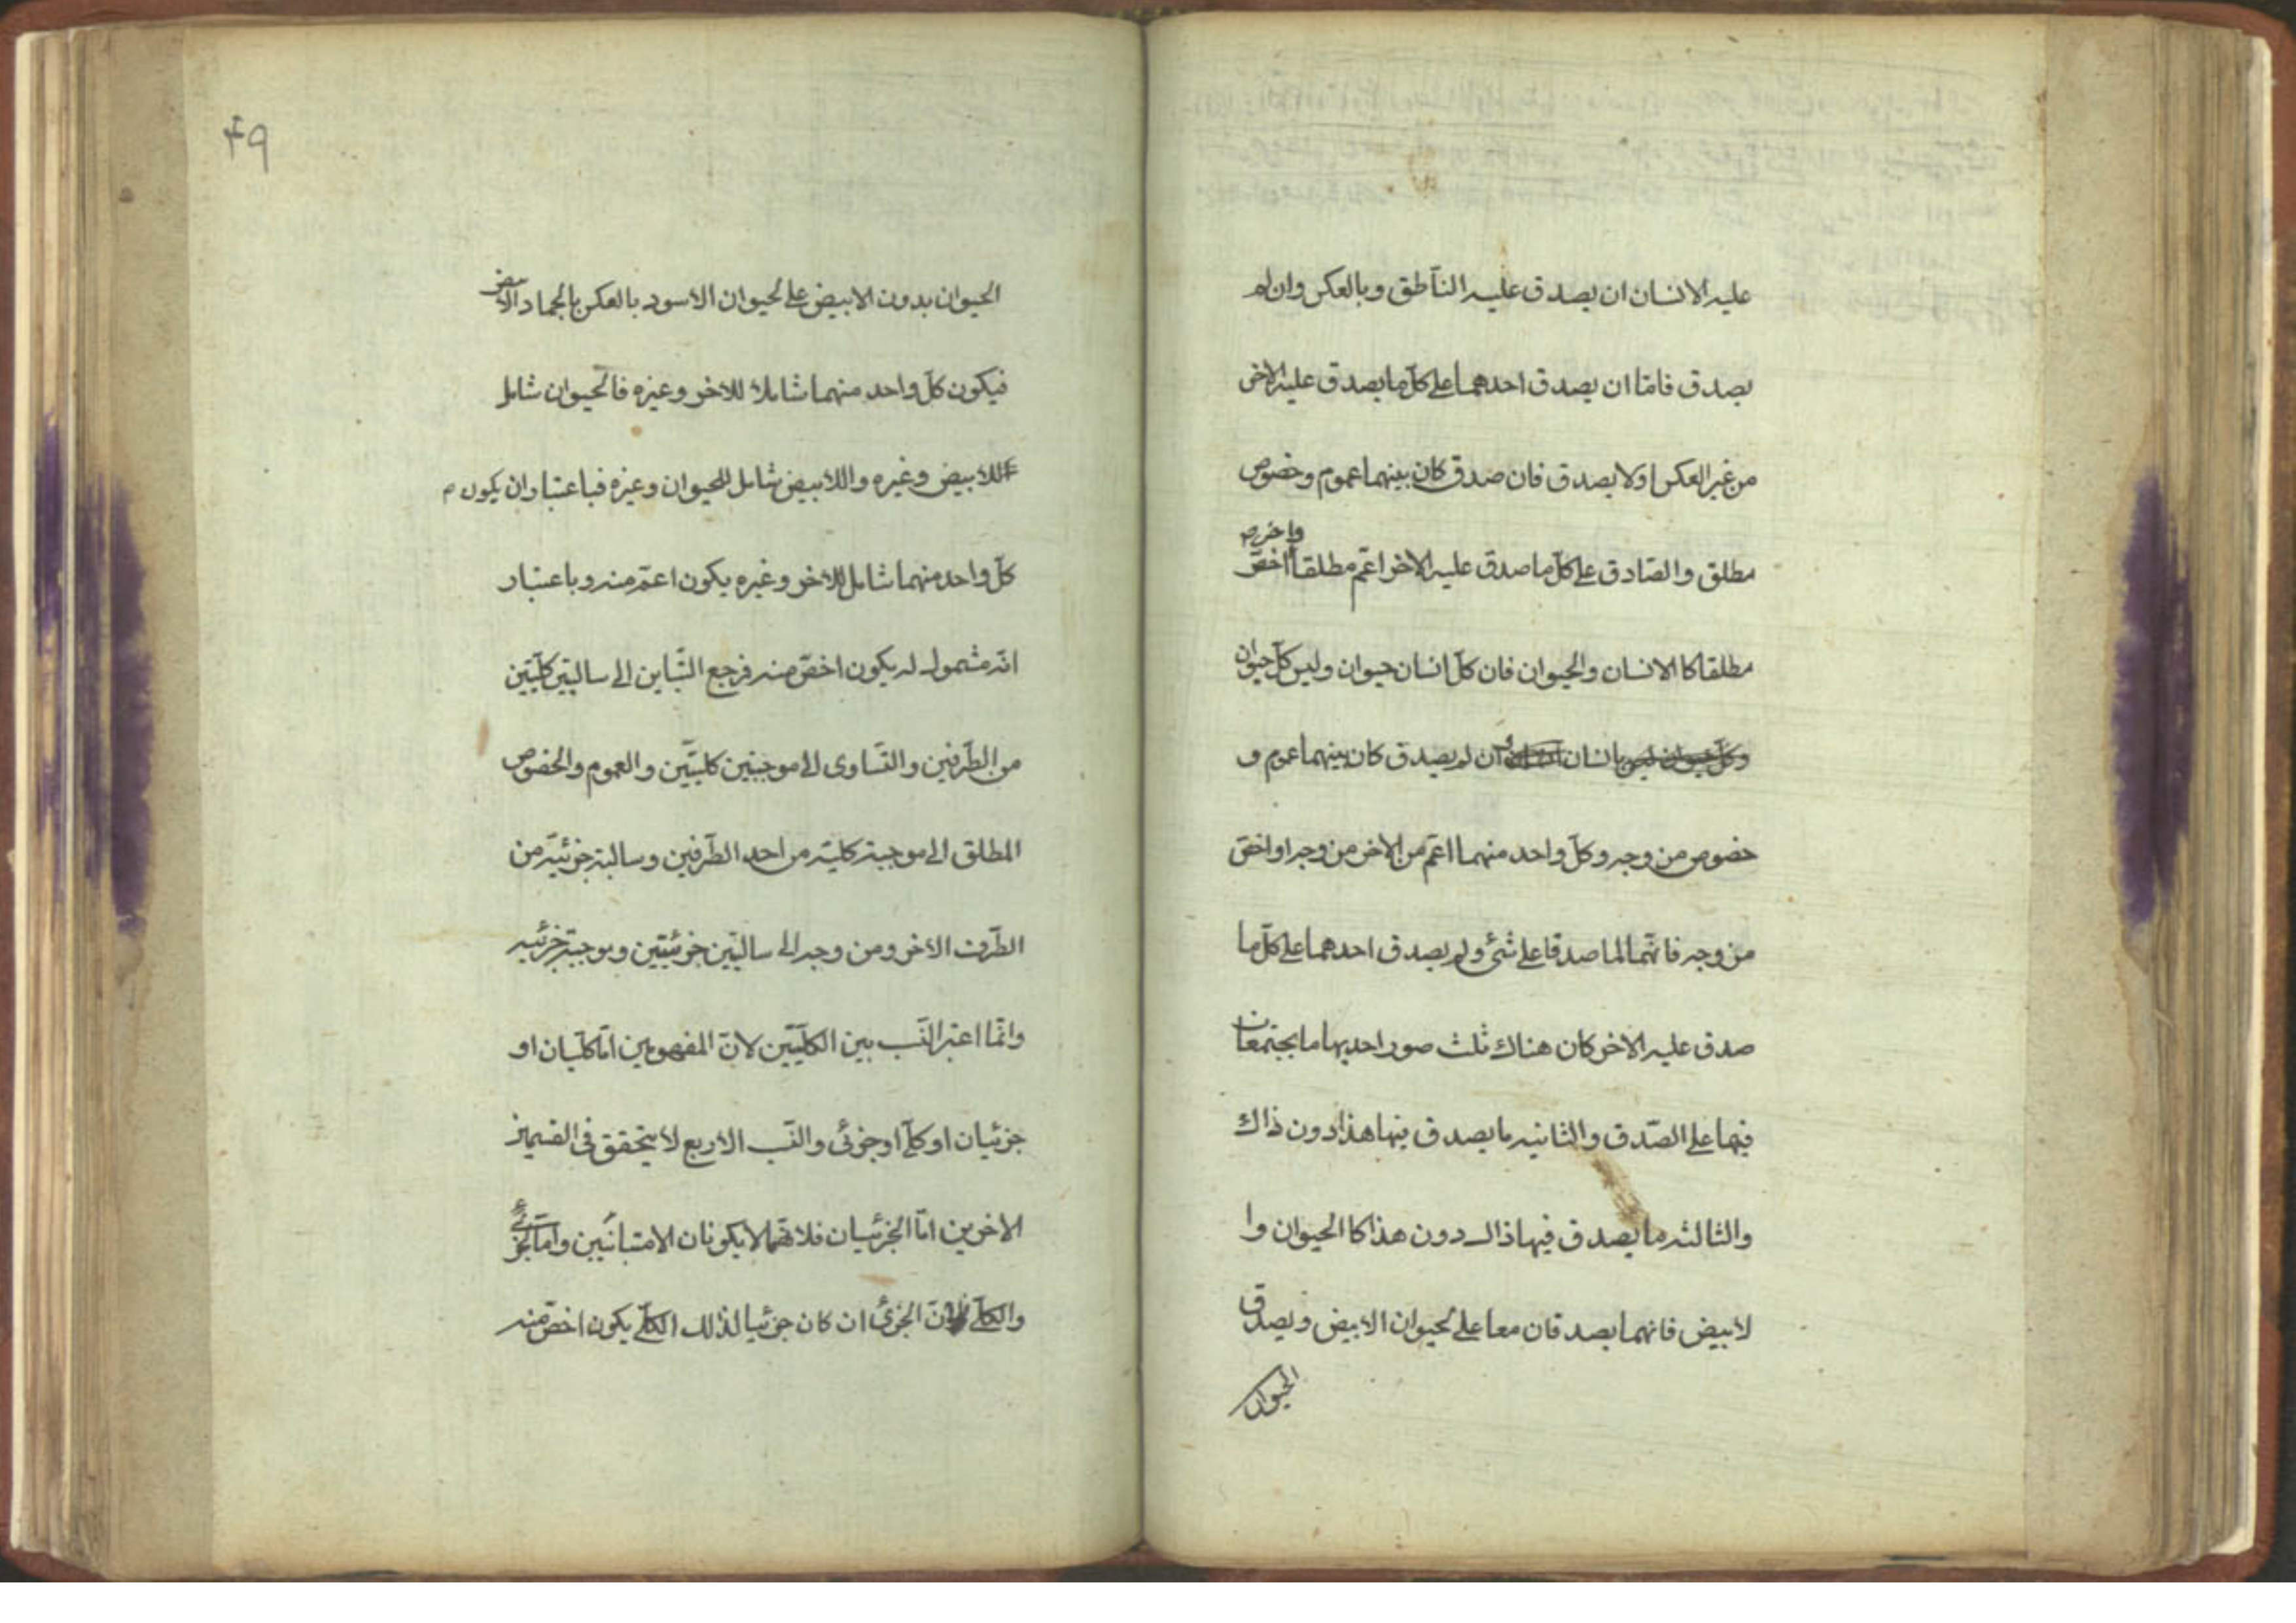 عليه الانسان ان يصدق عليه الناطق وبالعكس وان لم
يصدق فامّا ان يصدق احدهما على كلّ ما يصدق عليه الاخر
من غير العكس اولا يصدق فان صدق كان بينهما عموم وخصوص
واخر م
مطلق والصّادق على كلّ ما صدق عليه الاخر اعمّ مطلقا اخصّ
مطلقا كا الانسان والحيوان فان كلّ انسان حيوان وليس كلّ حيوان
وكلّ حيوان ليس بانسان وان لم يصدق كان بينهما عموم و
خصوص من وجه وكلّ واحد منهما اعمّ من الاخر من وجه اواخصّ
من وجه فانّهما لما صدقا على شئ ولم يصدق احدهما على كلّ ما
صدق عليه الاخر كان هناك ثلث صور احديها ما يجتمعان
فيها على الصّدق والثانيه ما يصدق فيها هذا دون ذاك
والثالثه ما يصدق فيها ذالك دون هذا كا الحيوان وا
لابيض فانهما يصدقان معا على الحيوان الابيض ويصدق
الحيوان
49
الحيوان بدون الابيض على الحيوان الاسود بالعكس بالجماد الابيض
فيكون كلّ واحد منهما شاملا للاخر وغيره فالحيوان شامل
للابيض وغيره واللابيض شامل للحيوان وغيره فباعتبار ان يكون م
كلّ واحد منهما شامل للاخر وغيره يكون اعمّ منه وباعتبار
انّه مشمول له يكون اخصّ منه فرجع التّباين الى سالبتين كلّيّتين
من الطّرفين والتّساوى الى موجبتين كليّتين والعموم والخصوص
المطلق الى موجبة كليّة من احد الطّرفين وسالبة جزئيّة من
الطّرف الاخر ومن وجه الى سالبتين جزئيّتين وموجبة جزئيه
وانّما اعتبر النّسب بين الكلّيّين لانّ المفهومين امّا كلّيان او
جزئيان او كلّى او جزئى والنّسب الاربع لا يتحقق فى القسمين
الاخرين امّا الجزئيان فلانّهما لا يكونان الا متبائنين وامّا الجزئى
والكلّى فلانّ الجزئى ان كان جزئيا لذلك الكلّى يكون اخصّ منه